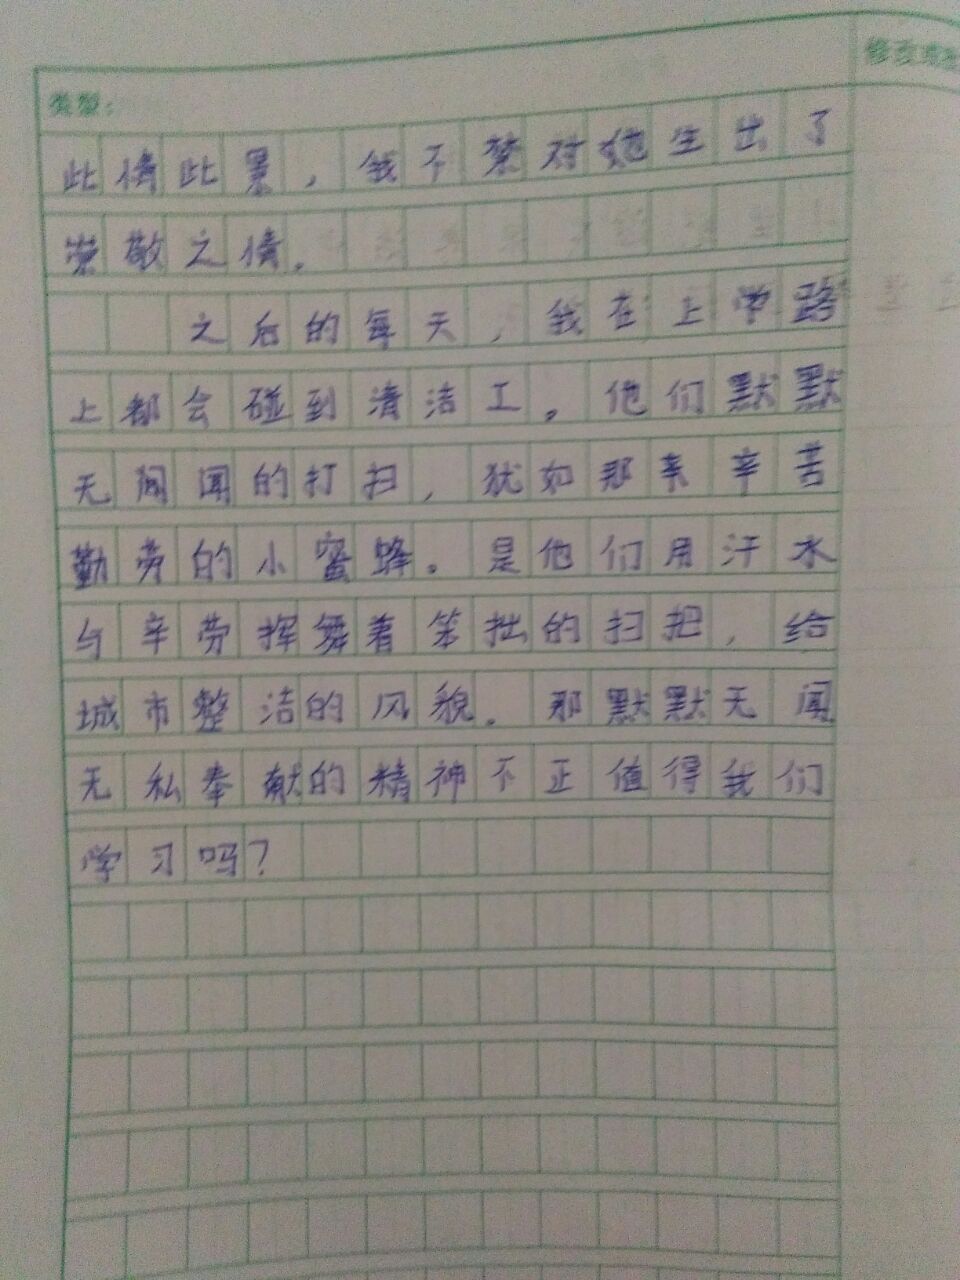 类型:
修改
此情此景，我不禁对她生出了
崇敬之情。
之后的每天，我在上学路
上都会碰到清洁工。他们默默
无闻闻的打扫，犹如那亲辛苦
勤劳的小蜜蜂。是他们用汗水
与辛劳挥舞着笨拙的扫把，给
城市整洁的风貌。那默默无闻
无私奉献的精神不正值得我们
学习吗？